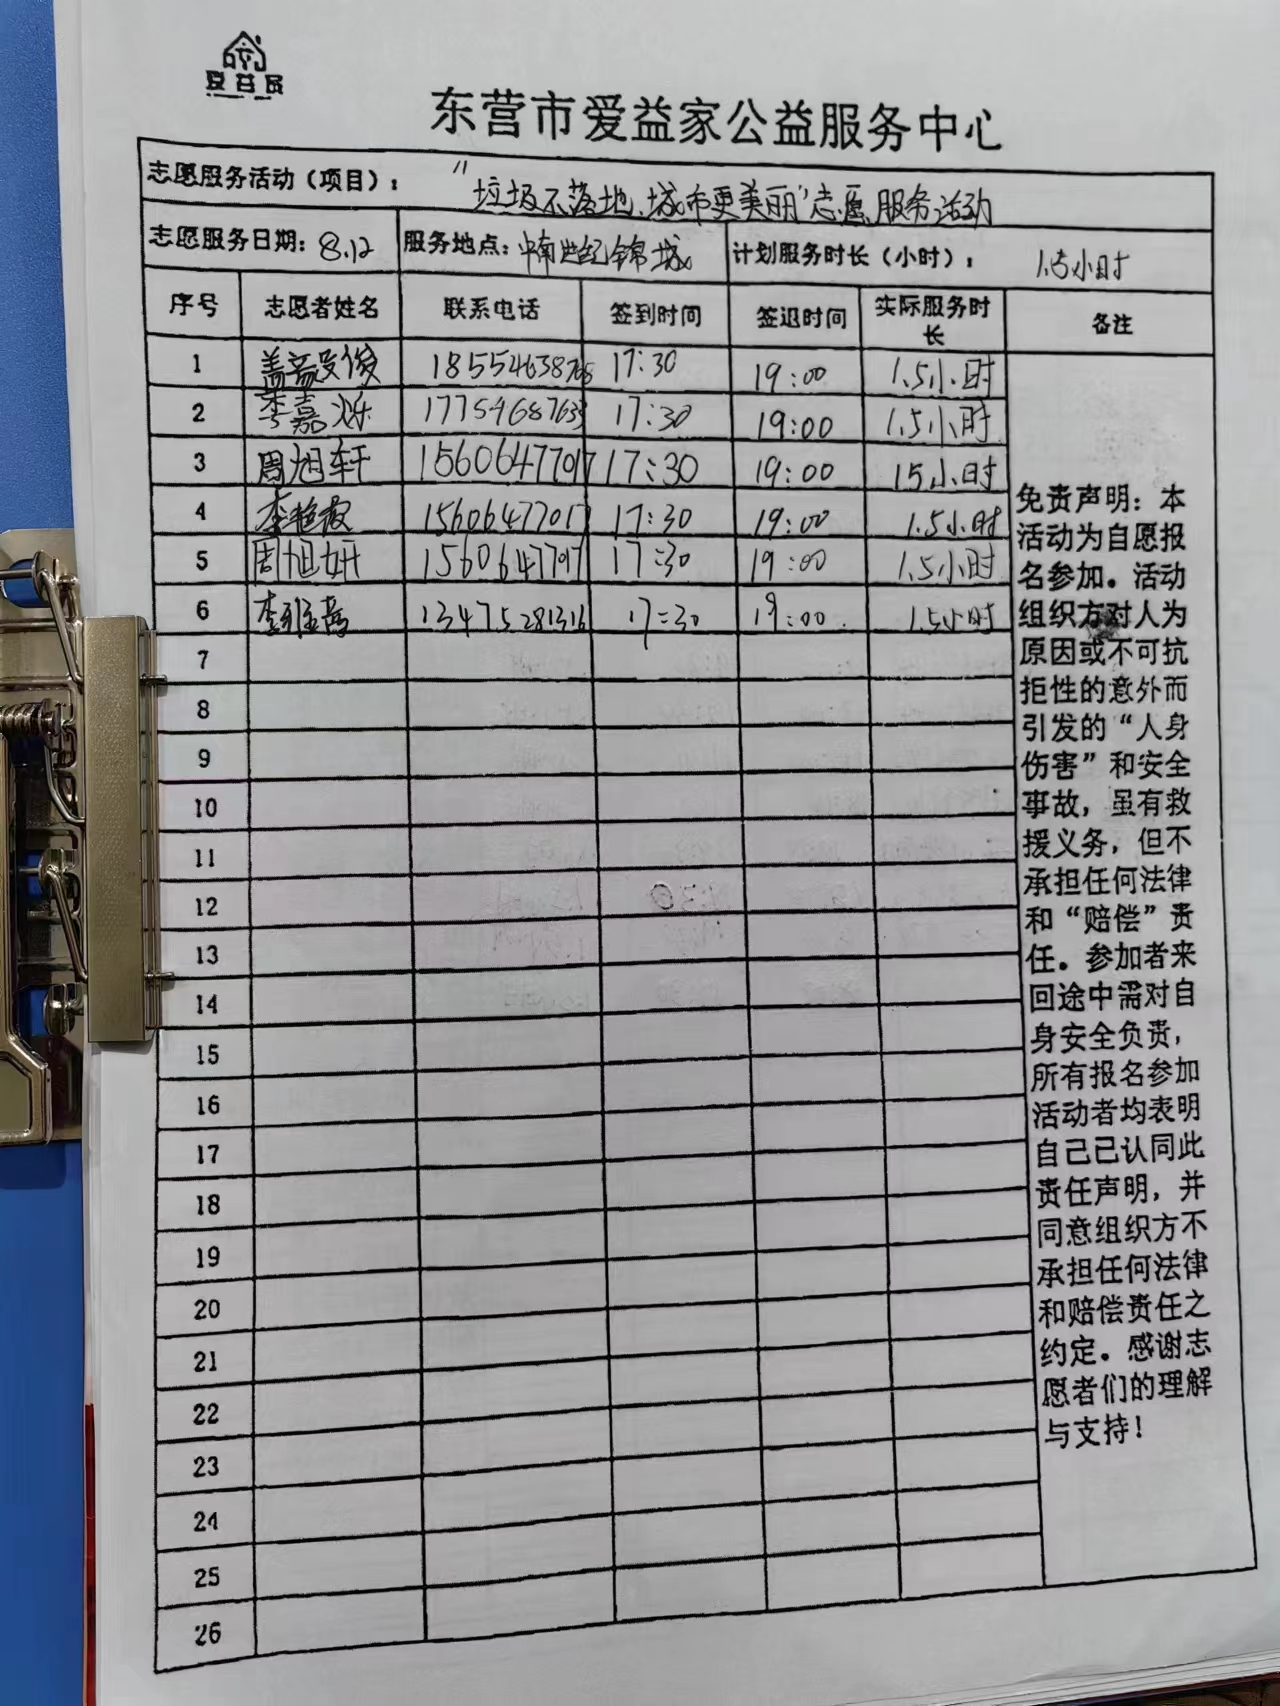 爱益家
东营市爱益家公益服务中心
志愿服务活动（项目）： “垃圾不落地、城市更美丽”志愿服务活动
志愿服务日期：8.12 服务地点：中南世纪锦城 计划服务时长（小时）： 1.5小时
序号 志愿者姓名 联系电话 签到时间 签退时间 实际服务时长 备注
1 俊 18554638768 17:30 19:00 1.5小时
2 李嘉烁 1775468763 17:30 19:00 1.5小时
3 周旭轩 15606477017 17:30 19:00 15小时
4 李艳霞 15606477017 17:30 19:00 1.5小时
5 周旭妍 1560647707 17:30 19:00 1.5小时
6 李 13475281316 17:30 19:00 1.5小时
7
8
9
10
11
12
13
14
15
16
17
18
19
20
21
22
23
24
25
26
免责声明：本
活动为自愿报
名参加。活动
组织方对人为
原因或不可抗
拒性的意外而
引发的“人身
伤害”和安全
事故，虽有救
援义务，但不
承担任何法律
和“赔偿”责
任。参加者来
回途中需对自
身安全负责，
所有报名参加
活动者均表明
自己已认同此
责任声明，并
同意组织方不
承担任何法律
和赔偿责任之
约定。感谢志
愿者们的理解
与支持！